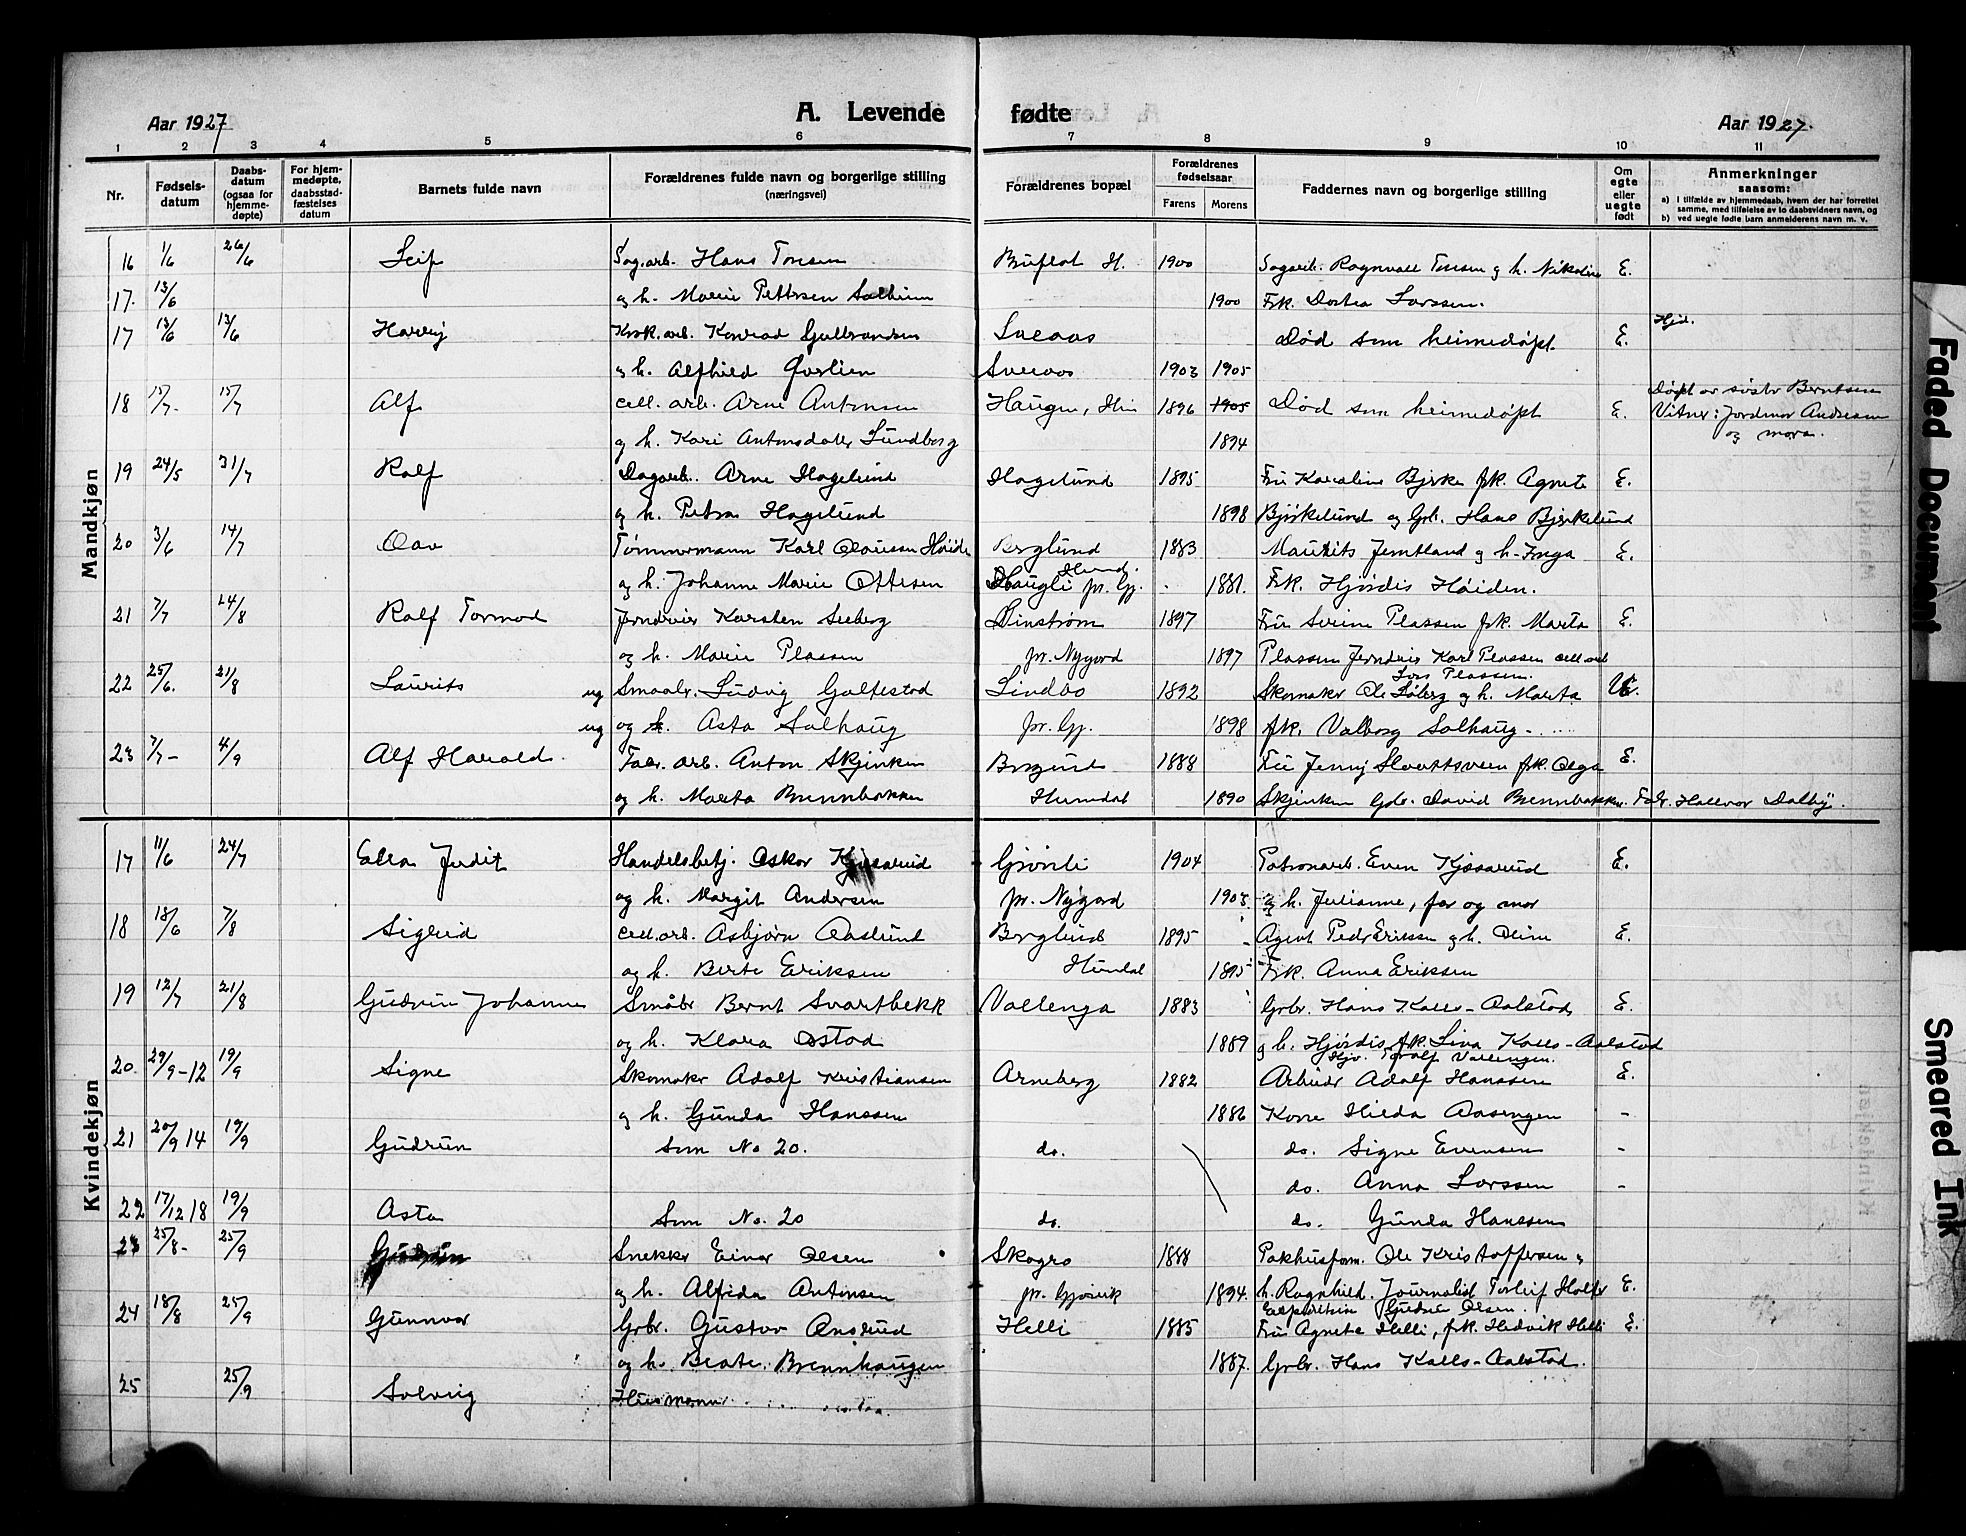 A. Levende fødte
Aar 1927
Aar 1927.
1 2 3 4 5 6 7 8 9 10 11
Nr.
Fødsels-
datum
Daabs-
datum
(ogsaa for
hjemme-
døpte)
For hjem-
medøpte,
daabsstad-
fæstelses
datum
Barnets fulde navn
Forældrenes fulde navn og borgerlige stilling
(næringsvei)
Forældrenes bopæl
Forældrenes
fødselsaar
Farens Morens
Faddernes navn og borgerlige stilling
Om
egte
eller
uegte
født
Anmerkninger
saasom:
a) I tilfælde av hjemmedaab, hvem der har forrettet
samme, med tilføielse av to daabsvidners navn, og
b) ved uegte fødte barn anmelderens navn m. v.
Mandkjøn
16 1/6 26/6 Leif Sag.arb. Hans Tonsen Bruflat H. 1900 Sagarb. Ragnvald Tonsen og h. Nikoline E.
17. 13/6 og h. Marie Pettersen 1900 Frk. Dortea Larssen.
17 13/6 13/6 Harry Konrad Gulbrandsen Sveaas Død som heimedøpt. E. Hjd.
og h. Alfhild Sveaas 1903 1905
18 15/7 15/7 Alf Cell. arb. Arne Antonsen Haugen, 1896 1905 Død som heimedøpt E. Døpt av søster Berntsen
Vitner: Jordmor Andresen
og h. Kari Antonsdatter Lundborg 1894 og mora.
19 24/5 31/7 Ralf Dagarb. Arne Hagelund Hagelund 1895 Fru Karoline Bjerke frk. Agnete E.
og h. Petra Hagelund 1898 Bjørkelund og Grb. Hans Bjørkelund
20 3/6 14/7 Oav Tømmermann Karl Olaussen Berglund 1883 Maurits Jemtland og h. Inga E.
Hund.
og h. Johanne Marie Ottesen Haugli pr. Gj. 1881. Frk. Hjørdis Høiden.
21 7/7 14/8 Ralf Tormod Jerndreier Karsten Seeberg Linstrøm 1897 Fru Serine Plassen frk. Marta E.
og h. Marie Plassen pr. Nygard 1897 Plassen Jerndreier Karl Plassen cell arb
Lars Plassen.
22 25/6. 21/8 Laurits ug Smaabr. Ludvig Galtestad Lindbo 1892 Skomaker Ole Løberg og h. Marta U.
ug og Asta Solhaug pr. Gj. 1898 frk. Valborg Solhaug
23 7/7 4/9 Alf Harald. Fabr. arb. Anton Skjerken Berglund 1888 Fru Jenny frk. Olga E.
og h. Marta Brennbakken Hundal 1890 Skjerken Gbr. David Brennbakken. Fabr. Hallvor Dalby.
Kvindekjøn
17 11/6 24/7 Ella Judit Handelsbetj. Oskar Kjøsarud Grønli 1904 Patronarb. Even Kjøsarud E.
og h. Margit Andersen pr. Nygard 1903. og h. Julianne, far og mor
18 18/6 7/8 Sigrid Cell.arb. Asbjørn Aaslund Berglund 1895 Agent Peder Eriksen og h. Oline E.
og h. Berte Eriksen Hundal 1895 Frk. Anna Eriksen
19 12/7 21/8 Gudrun Johanne Småbr Bernt Svartbekk Vallenga 1883 Grbr. Hans Kalls-Aalstad E.
og h. Klara Østad 1889 og h. Hjørdis, frk. Lina Kalls-Aalstad
Torolf Vallengen.
20. 29/9-12 19/9 Signe Skomaker Adolf Kristiansen Arneberg 1882 Arbeider Adolf Hanssen E.
og h. Gunda Hanssen 1886 Kone Hilda Aasengen -
21 20/9 14 19/9 Gudrun Som No 20. do. do. Signe Evensen -
do. Anna Larssen -
22 17/12 18 19/9 Asta Som No. 20 do. do. Gunda Hanssen
23 25/8- 25/9 Gudrun Snekker Einar Olsen Skogro 1888 Pakhusform. Ole Kristoffersen
og h. Alfrida Antonsen pr. Gjøvik 1894. h. Ragnhild. Journalist Torleif Holter E.
Gudrun Olsen.
24 18/8 25/9 Gunnvor Grbr. Gustav Ansrud Helli 1885 Fru Agnete Helli, frk. Hedvik Helli E.
og h. Beate Brennhaugen 1887. Grbr. Hans Kalls-Aalstad.
25 25/9 Solveig Husmann
Faded Document
Smeared Ink